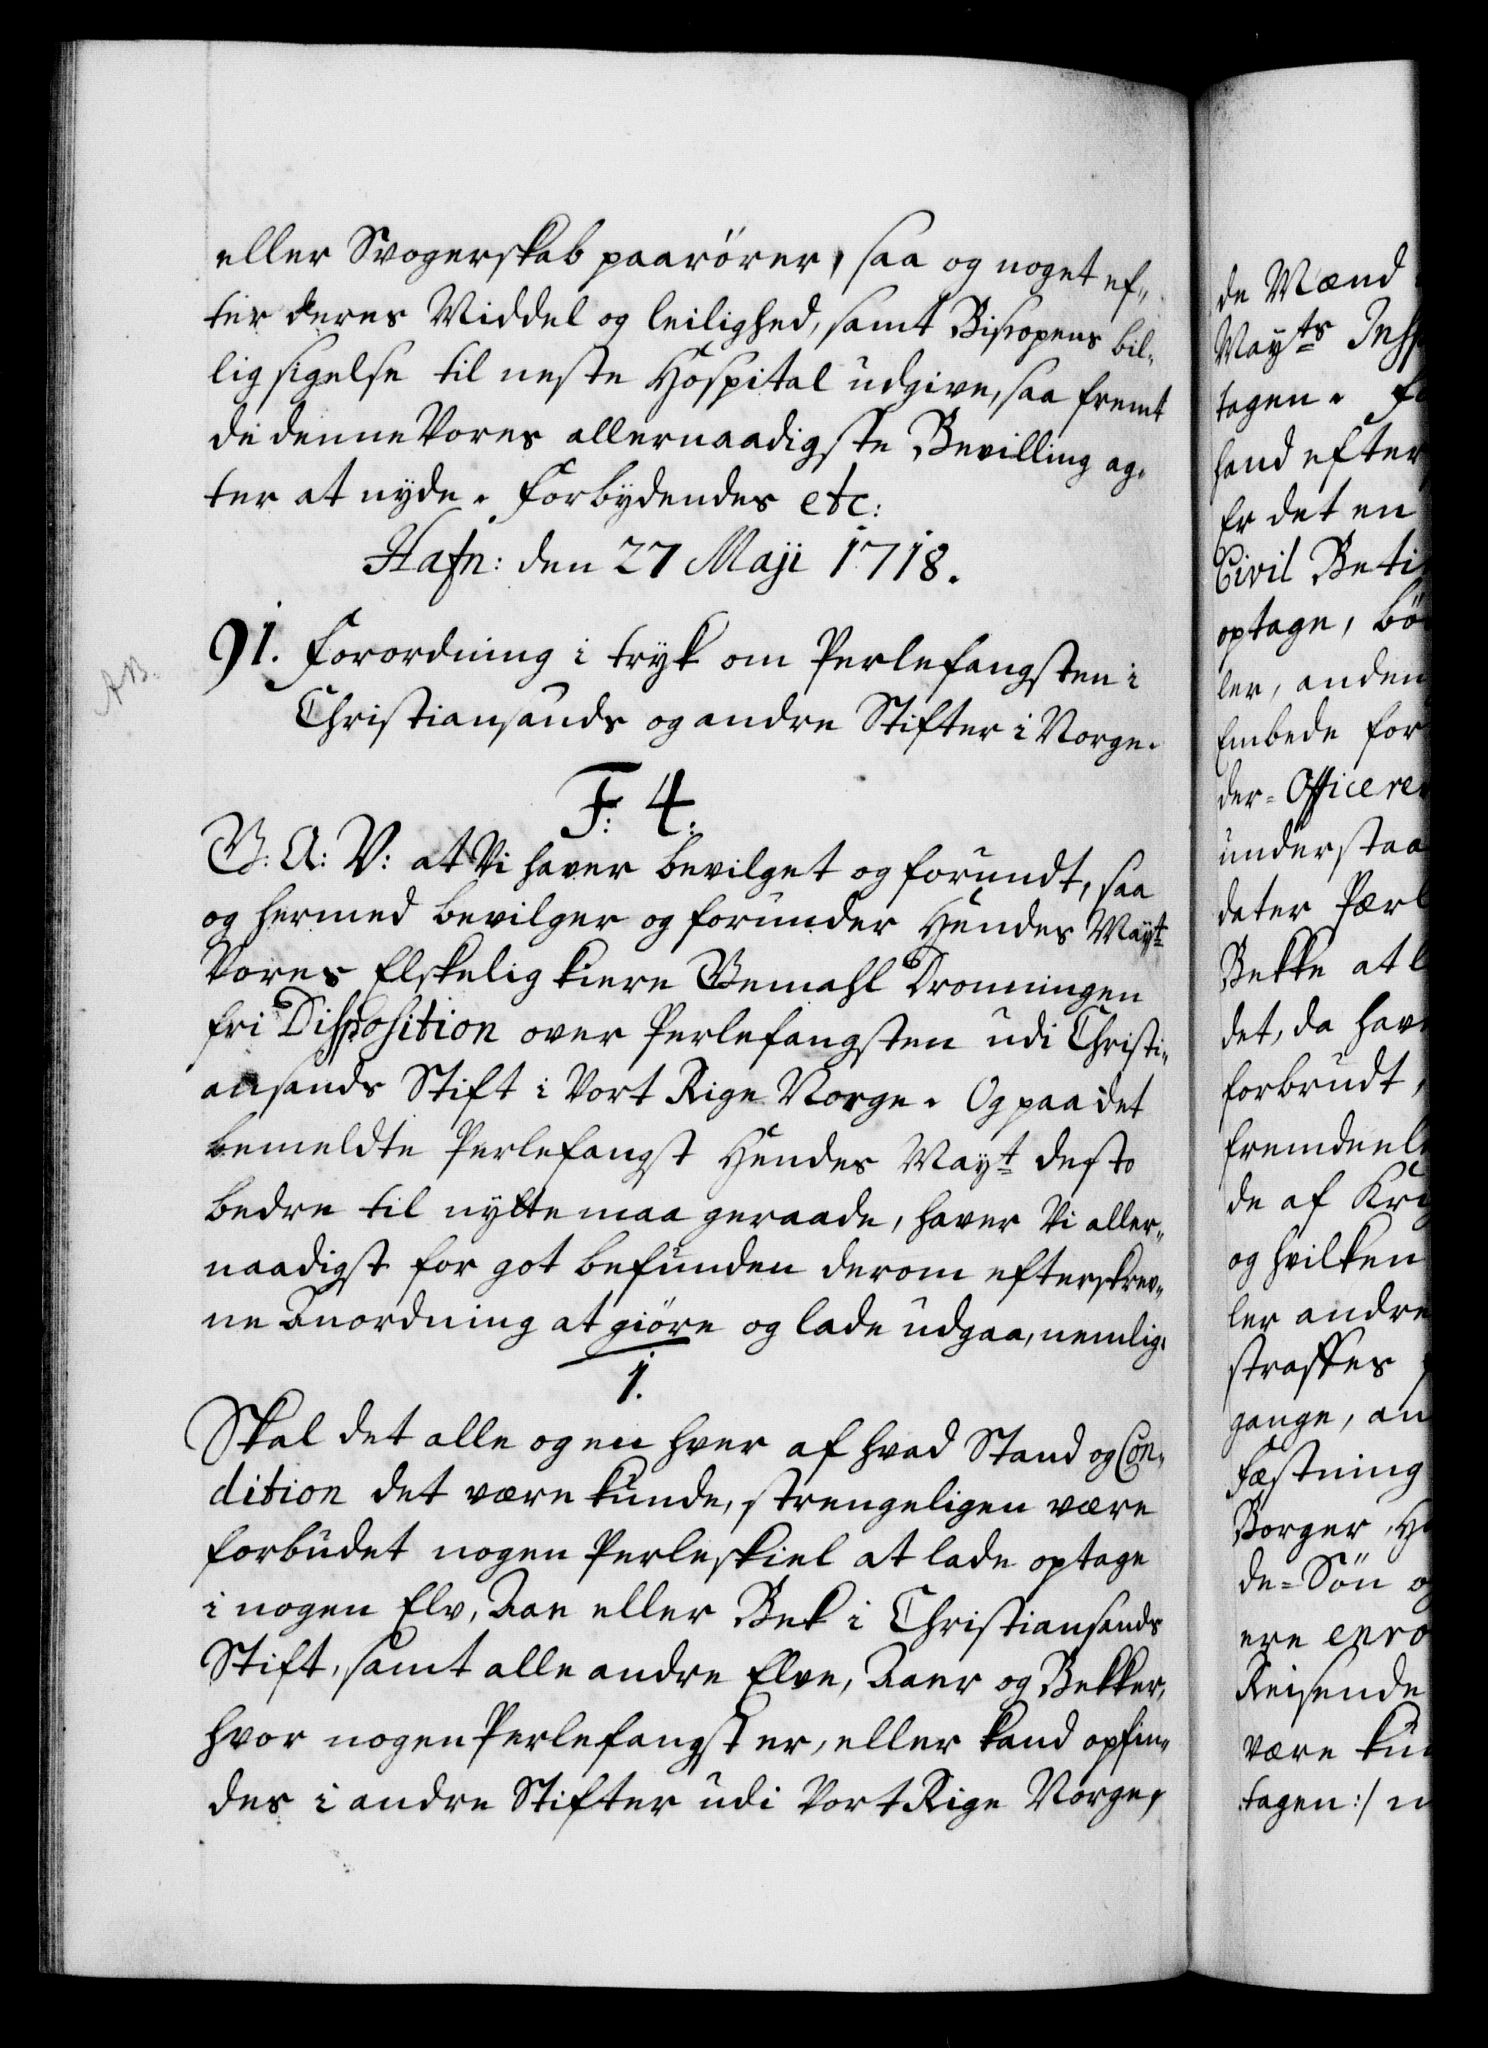 eller Svogerskab paarører, saa og noget ef„
ter deres Middel og leilighed, samt Bispens bil„
lig sigelse til neste Hospital udgive, saa fremt
de denne Vores allernaadigste Bevilling ag„
ter at nyde. Forbydendes etc:
Hafn: den 27 Maji 1718.
91. Forordning i tryk om Perlefangsten i
NB.
Christiansands og andre Stifter i Norge.
F: 4:
G: A: V: at Vi haver bevilget og forundt, saa
og hermed bevilger og forunder Hendes Mayt
Vores Elskelig kiere Gemahl Dronningen
fri Disposition over Perlefangsten udi Christi„
ansands Stift i Vort Rige Norge. Og paa det
bemeldte Perlefangst Hendes Mayt desto
bedre til nytte maa geraade, haver Vi aller„
naadigst for got befunden derom efterskrev„
ne Anordning at giöre og lade udgaa, nemlig.
1.
Skal det alle og en hver af hvad Stand og Con„
dition det være kunde, strengeligen være
forbudet nogen Perleskiel at lade optage
i nogen Elv, Aae eller Bek i Christiansands
Stift, samt alle andre Elve, Aaer og Bekker,
hvor nogen Perlefangst er, eller kand opfin„
des i andre Stifter udi Vort Rige Norge,
de Mænd
Mayts Insp
tagen. F
hand efter
Er det en
Civil Beti
optage, bö
ler, anden
Embede for
der=Officere
understaa
dater Pærl
Bekke at l
det, da hav
forbrudt,
fremdeel
de af Kri
og hvilken
ler andre
straffes
gange, an
Fæstning
Borger, H
de=Sön o
ere enro
Reisende
være kun
tagen:/ n